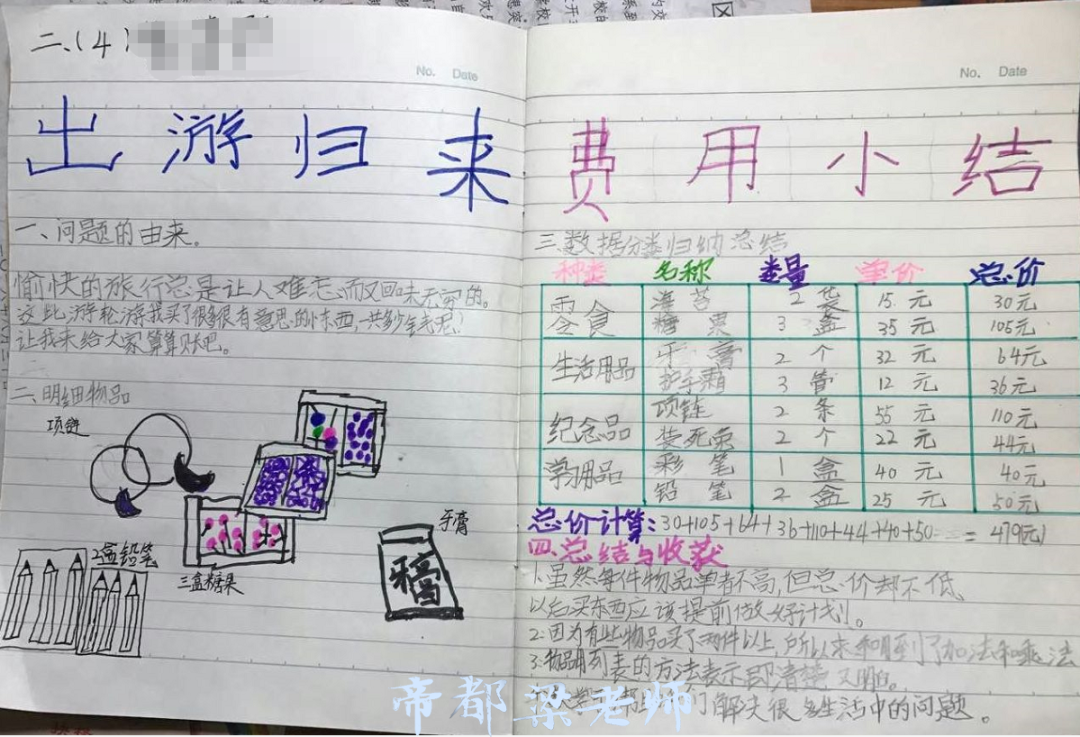 二、(4)
No. Date
出游归来
一、问题的由来。
愉快的旅行总是让人难忘而又回味无穷的。
这此游轮游我买了很多很有意思的东西,一共多少钱呢?
让我来给大家算算账吧。
二、明细物品
项链
牙膏
2盒铅笔
牙膏
三盒糖果
No. Date
费用小结
三、数据分类归纳总结
种类 名称 数量 单价 总价
零食 海苔 2 袋 15 元 30元
糖果 3 盒 35 元 105元
生活用品 牙膏 2 个 32 元 64元
护手霜 3 管 12 元 36元
纪念品 项链 2 条 55 元 110元
装死兔 2 个 22 元 44元
学习用品 彩笔 1 盒 40 元 40元
铅笔 2 盒 25 元 50元
总价计算:30+105+64+36+110+44+40+50=479(元)
四、总结与收获
1.虽然每件物品单者不高,但总价却不低,
以后买东西应该提前做好计划!。
2.因为有些物品买了两件以上,所以来和用到了加法和乘法
3.物品用列表的方法表示即清楚又明白。
们解决很多生活中的问题。
帝都梁老师